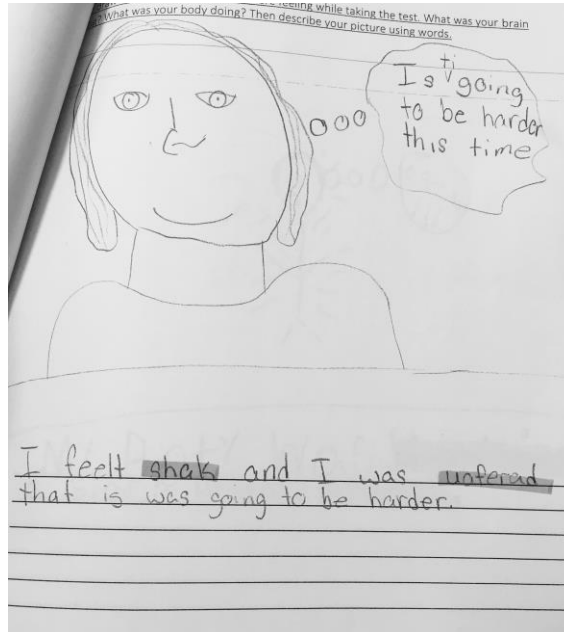 feeling while taking the test. What was your brain
? What was your body doing? Then describe your picture using words.
Is ti going
to be harder
this time
I feelt shak and I was unferad
that is was going to be harder.